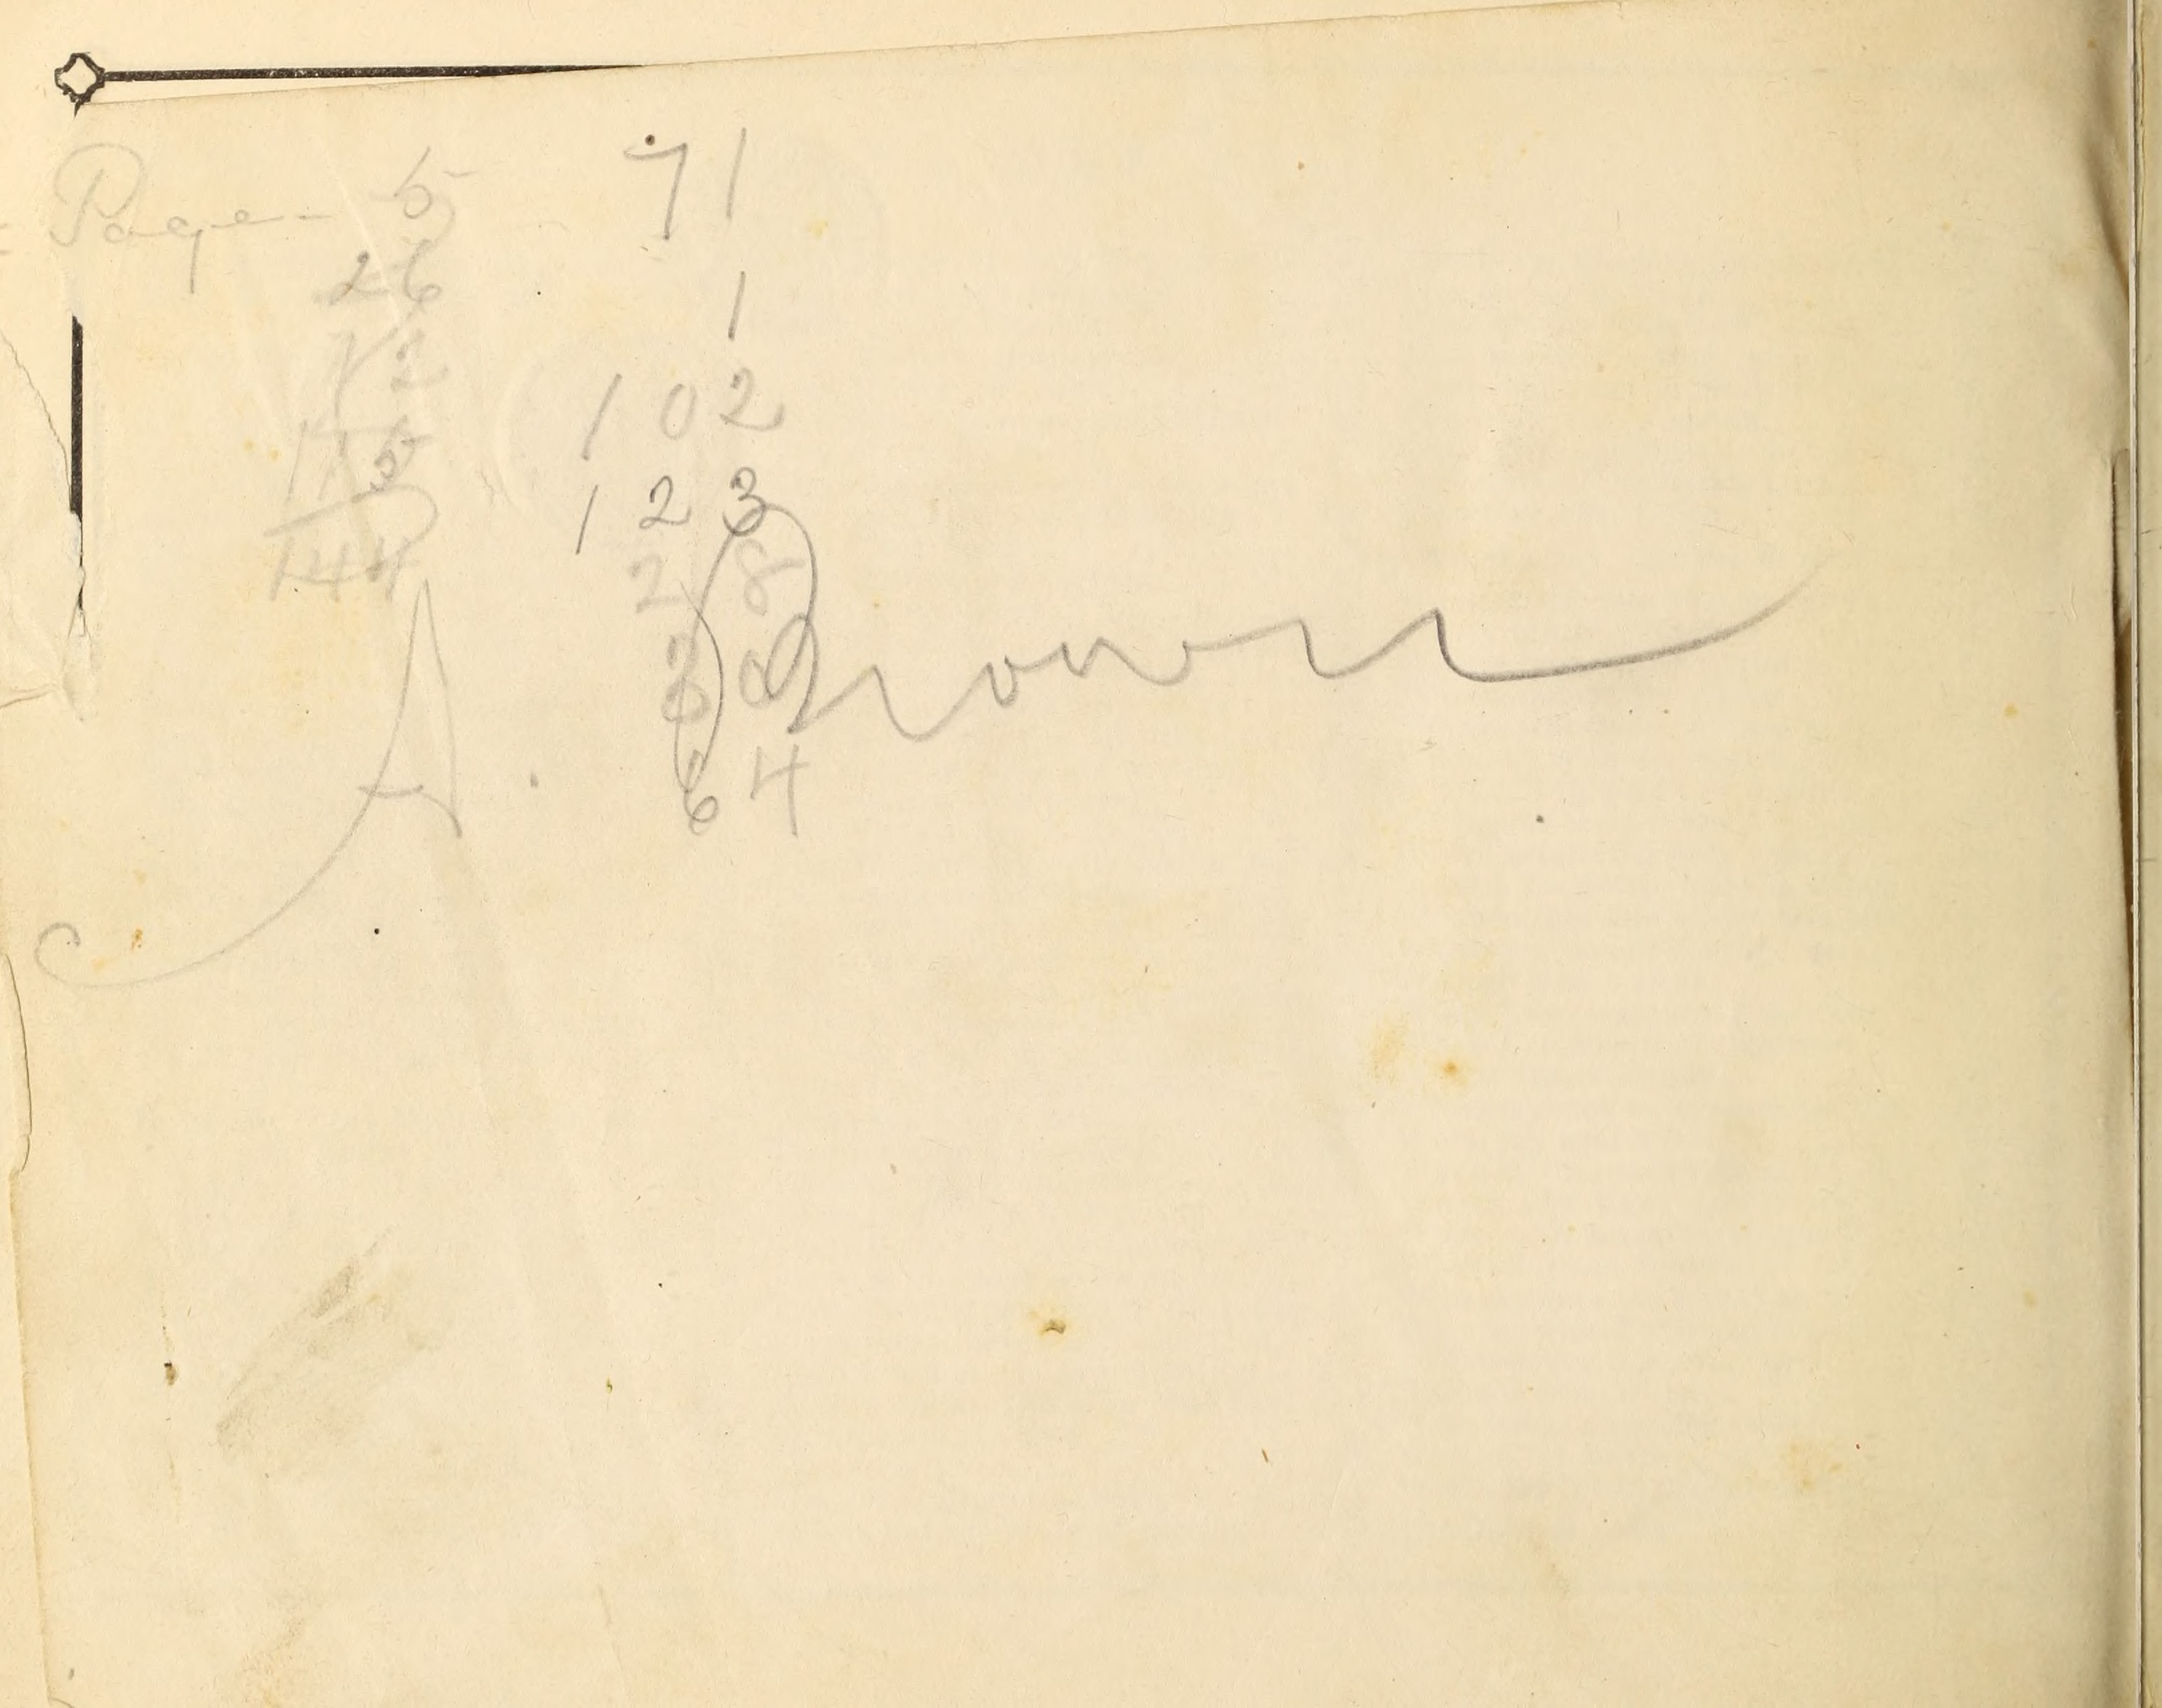 Page - 5 71
26 1
72 102
115 123
144 28
30
64
A. Brown